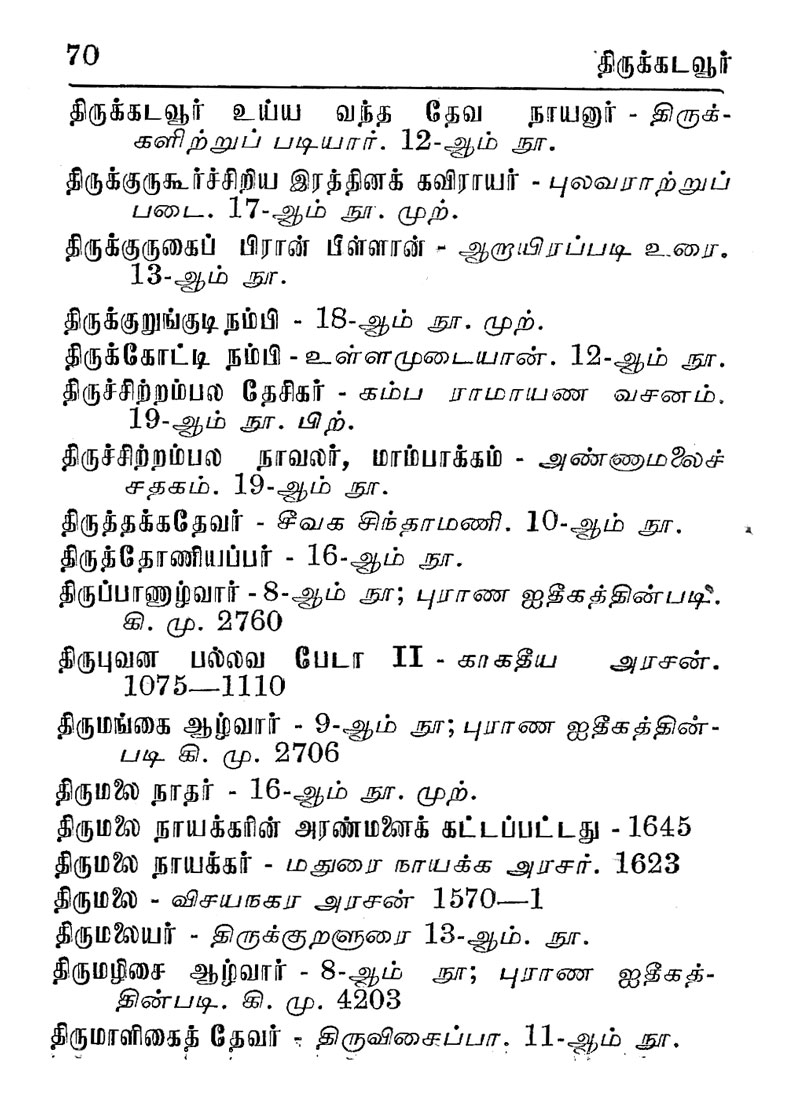 70 திருக்கடவூர்
திருக்கடவூர் உய்ய வந்த தேவ நாயனார் - திருக்-
களிற்றுப் படியார். 12-ஆம் நூ.
திருக்குருகூர்ச்சிறிய இரத்தினக் கவிராயர் - புலவராற்றுப்
படை. 17-ஆம் நூ. முற்.
திருக்குருகைப் பிரான் பிள்ளான் - ஆறாயிரப்படி உரை.
13-ஆம் நூ.
திருக்குறுங்குடி நம்பி - 18-ஆம் நூ. முற்.
திருக்கோட்டி நம்பி - உள்ளமுடையான். 12-ஆம் நூ.
திருச்சிற்றம்பல தேசிகர் - கம்ப ராமாயண வசனம்.
19-ஆம் நூ. பிற்.
திருச்சிற்றம்பல நாவலர், மாம்பாக்கம் - அண்ணாமலைச்
சதகம். 19-ஆம் நூ.
திருத்தக்கதேவர் - சீவக சிந்தாமணி. 10-ஆம் நூ.
திருத்தோணியப்பர் - 16-ஆம் நூ.
திருப்பாணாழ்வார் - 8-ஆம் நூ; புராண ஐதீகத்தின்படி.
கி. மு. 2760
திருபுவன பல்லவ பேடா II - காகதீய அரசன்.
1075—1110
திருமங்கை ஆழ்வார் - 9-ஆம் நூ; புராண ஐதீகத்தின்-
படி கி. மு. 2706
திருமலை நாதர் - 16-ஆம் நூ. முற்.
திருமலை நாயக்கரின் அரண்மனைக் கட்டப்பட்டது - 1645
திருமலை நாயக்கர் - மதுரை நாயக்க அரசர். 1623
திருமலை - விசயநகர அரசன் 1570—1
திருமலையர் - திருக்குறளுரை 13-ஆம். நூ.
திருமழிசை ஆழ்வார் - 8-ஆம் நூ; புராண ஐதீகத்-
தின்படி. கி. மு. 4203
திருமாளிகைத் தேவர் - திருவிசைப்பா. 11-ஆம் நூ.